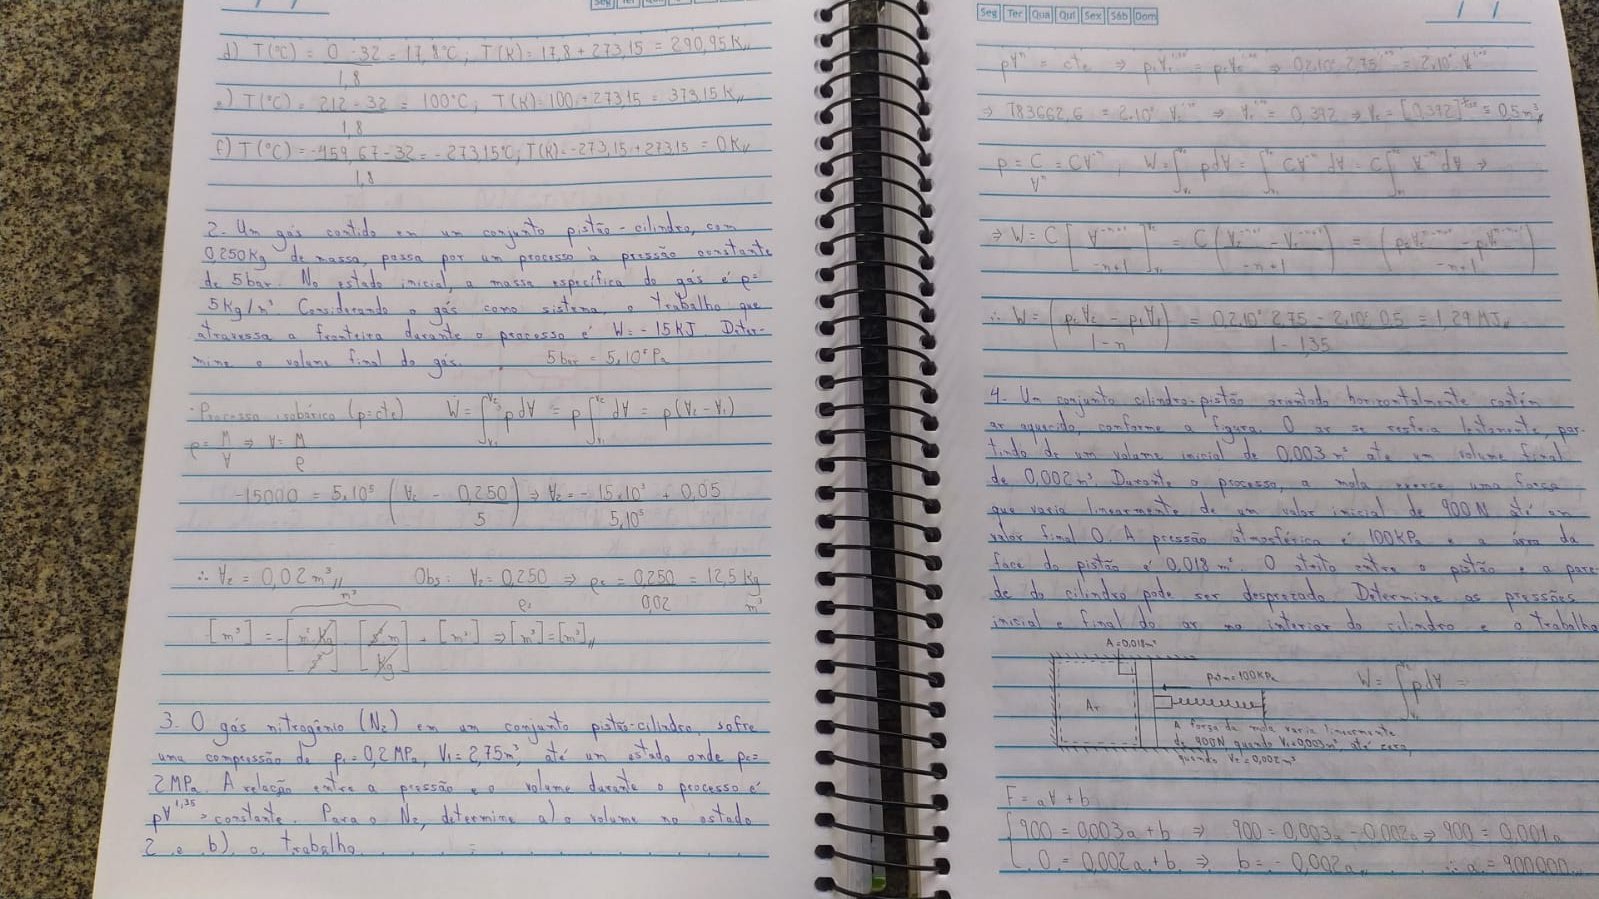 Seg Ter Qua Qui Sex Sáb Dom
d) T(°C) = 0 - 32 = 17,8°C ; T(K) = 17,8 + 273,15 = 290,95 K
1,8
e) T(°C) = 212 - 32 = 100°C ; T(K) = 100 + 273,15 = 373,15 K
1,8
f) T(°C) = -459,67 - 32 = -273,15°C, T(K) = -273,15 + 273,15 = 0 K
1,8
2- Um gás contido em um conjunto pistão-cilindro, com
0,250 Kg de massa, passa por um processo à pressão constante
de 5 bar. No estado inicial, a massa específica do gás é ρ =
5 Kg/m³. Considerando o gás como sistema, o trabalho que
atravessa a fronteira durante o processo é W = - 15 KJ. Deter-
mine o volume final do gás. 5 bar = 5.10⁵ Pa
· Processo isobárico (p = cte) W = ∫ p dV = p ∫ dV = p (V₂ - V₁)
ρ = M ⇒ V = M
V ρ
-15000 = 5.10⁵ ( V₂ - 0,250 ) ⇒ V₂ = - 15.10³ + 0,05
5 5.10⁵
∴ V₂ = 0,02 m³ Obs: V₂ = 0,250 ⇒ ρ₂ = 0,250 = 12,5 Kg
ρ₂ 0,02 m³
m³
[m³] = - [m² · Kg] [s² m] + [m³] ⇒ [m³] = [m³]
Kg
3- O gás nitrogênio (N₂) em um conjunto pistão-cilindro sofre
uma compressão de p₁ = 0,2 MPa, V₁ = 2,75 m³, até um estado onde p₂ =
2 MPa. A relação entre a pressão e o volume durante o processo é
pV^1,35 = constante. Para o N₂, determine a) o volume no estado
2 e b) o trabalho
Seg Ter Qua Qui Sex Sáb Dom
pVⁿ = cte ⇒ p₁V₁^1,35 = p₂V₂^1,35 ⇒ 0,2.10⁶ 2,75^1,35 = 2.10⁶ V₂^1,35
⇒ 783662,6 = 2.10⁶ V₂^1,35 ⇒ V₂^1,35 = 0,392 ⇒ V₂ = [0,392] = 0,5 m³
p = C = CV⁻ⁿ , W = ∫ p dV = ∫ CV⁻ⁿ dV = C ∫ V⁻ⁿ dV ⇒
Vⁿ
⇒ W = C [ V⁻ⁿ⁺¹ ] = C ( V₂⁻ⁿ⁺¹ - V₁⁻ⁿ⁺¹ ) = ( p₂V₂ⁿ⁻ⁿ⁺¹ - p₁V₁ⁿ⁻ⁿ⁺¹ )
-n+1 -n+1 -n+1
∴ W = ( p₂V₂ - p₁V₁ ) = 0,2.10⁶ 2,75 - 2.10⁶ 0,5 = 1,29 MJ
1 - n 1 - 1,35
4- Um conjunto cilindro-pistão orientado horizontalmente contém
ar aquecido, conforme a figura. O ar se resfria lentamente, par-
tindo de um volume inicial de 0,003 m³ até um volume final
de 0,002 m³. Durante o processo, a mola exerce uma força
que varia linearmente de um valor inicial de 900 N até um
valor final 0. A pressão atmosférica é 100 KPa e a área da
face do pistão é 0,018 m². O atrito entre o pistão e a pare-
de do cilindro pode ser desprezado. Determine as pressões
inicial e final do ar no interior do cilindro e o trabalho
A = 0,018 m²
patm = 100 KPa W = ∫ p dV =
Ar
A força da mola varia linearmente
de 900 N quando V₁ = 0,003 m³ até zero,
quando V₂ = 0,002 m³
F = aV + b
900 = 0,003a + b ⇒ 900 = 0,003a - 0,002a ⇒ 900 = 0,001a
0 = 0,002a + b ⇒ b = - 0,002a ∴ a = 900000